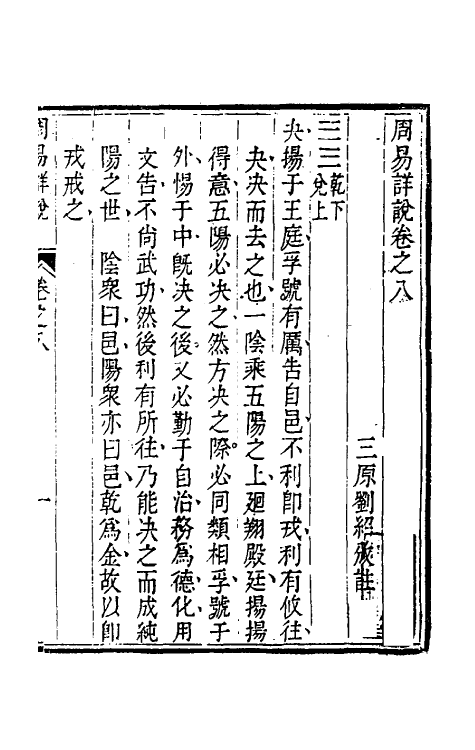 周易詳說卷之八
三原劉紹攽註
乾下
兌上
夬揚于王庭孚號有厲告自邑不利卽戎利有攸往
夬决而去之也一陰乘五陽之上廻翔殿廷揚揚
得意五陽必决之然方决之際必同類相孚號于
外惕于中旣决之後又必勤于自治務爲德化用
文告不尙武功然後利有所往乃能决之而成純
陽之世　陰衆曰邑陽衆亦曰邑乾爲金故以卽
戎戒之
周易詳說
卷之八
一